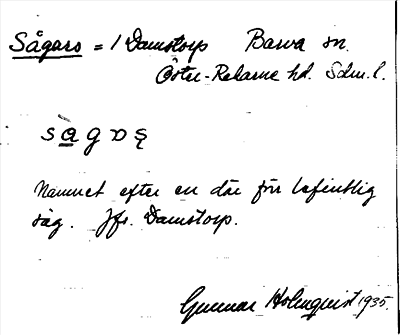 Sågars = 1 Damstorp Barva sn.
Öster-Rekarne hd. Sdm. l.
Namnet efter en där förr befintlig
såg. Jfr. Damstorp.
Gunnar Holmquist 1935.